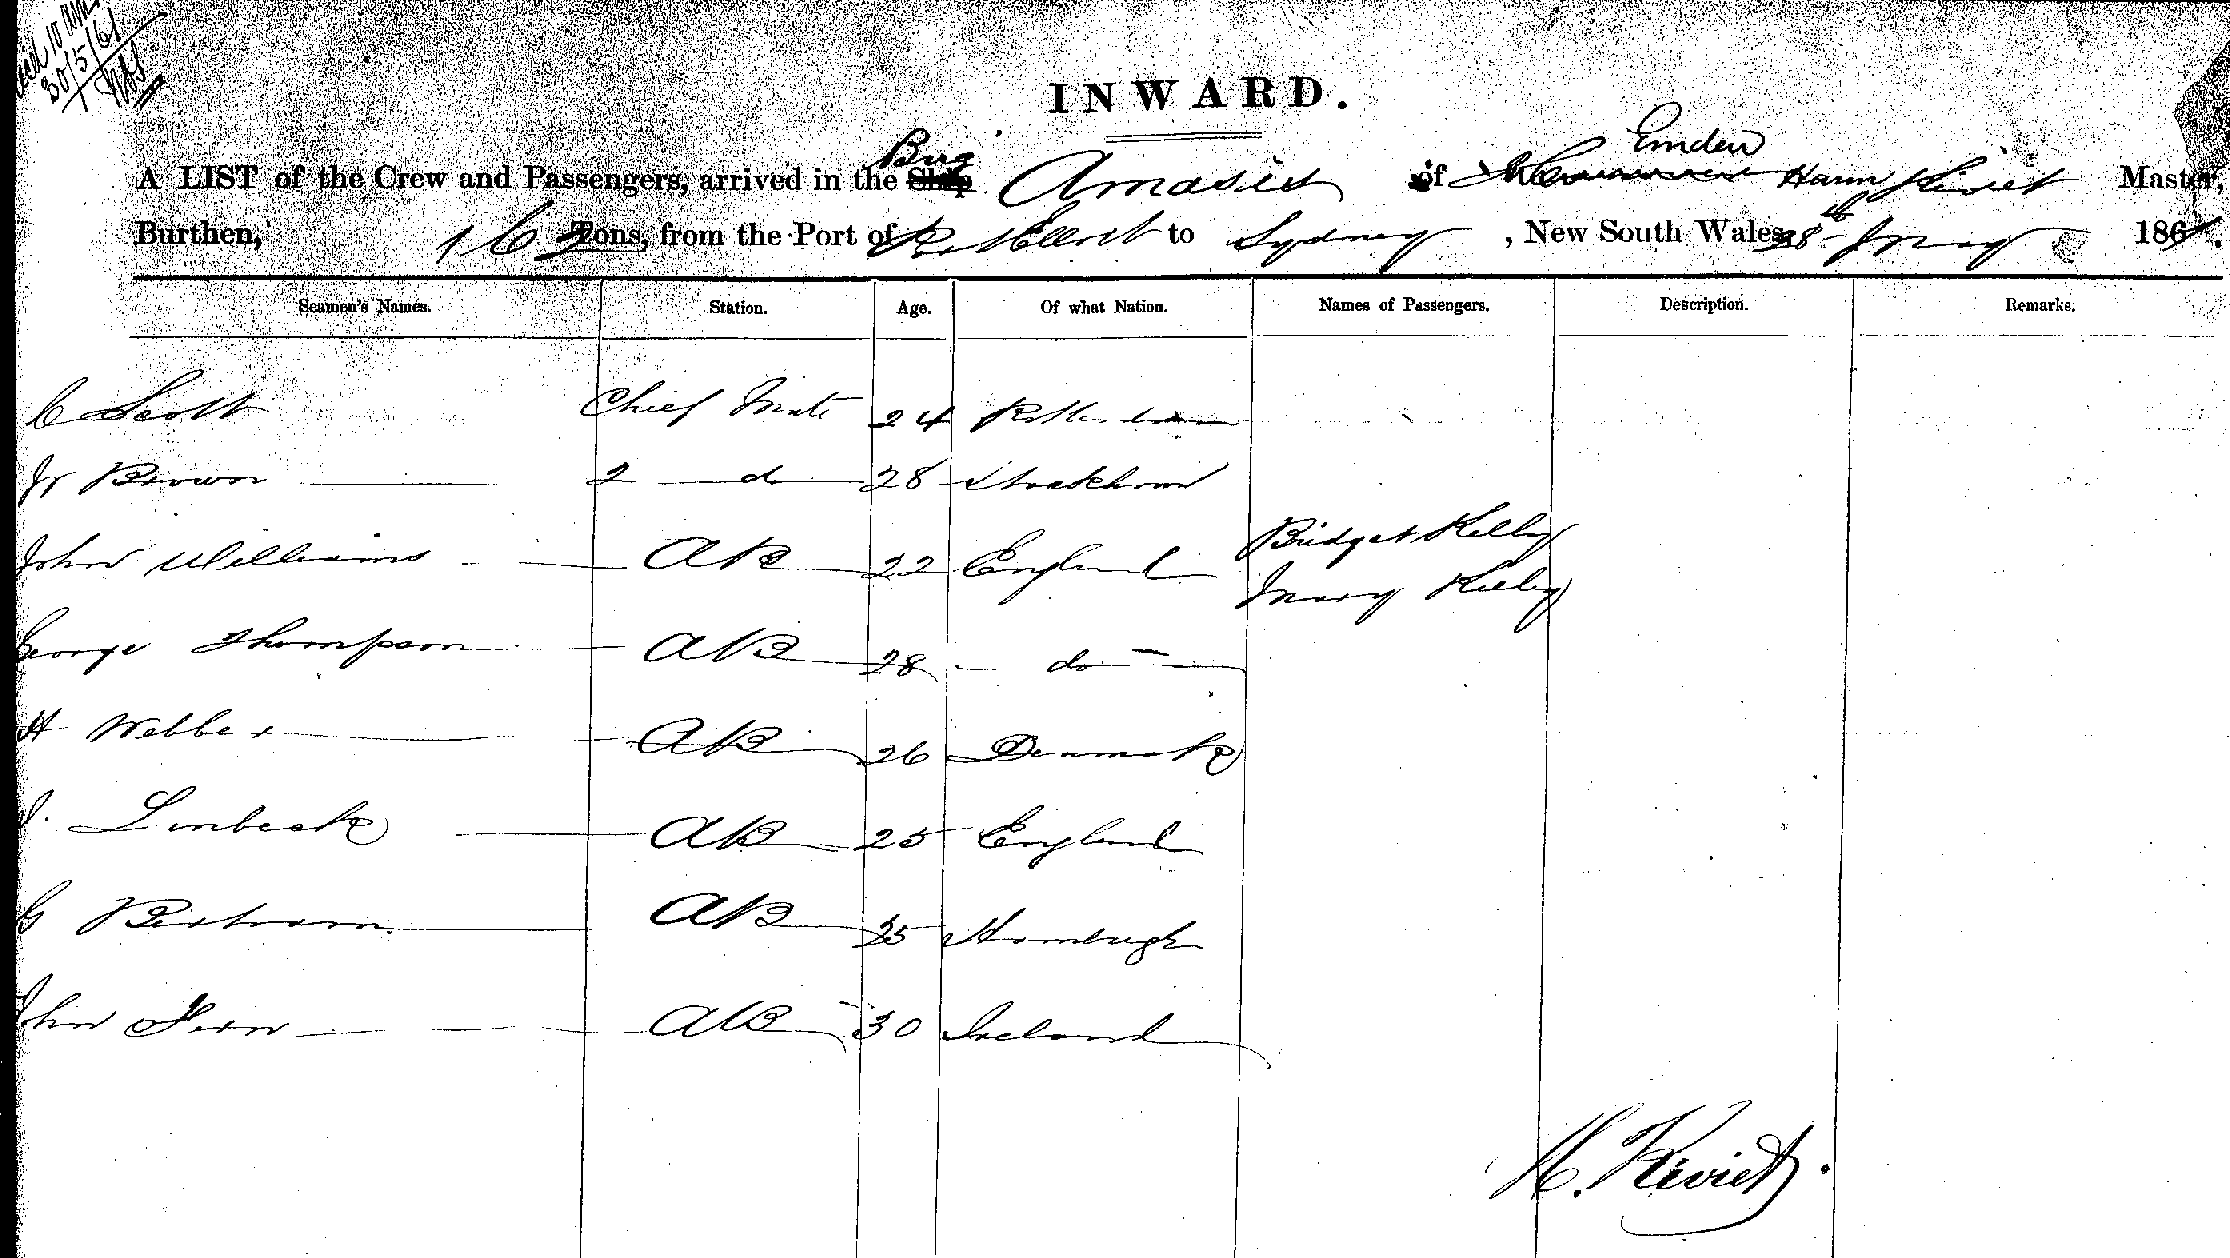 30/5/61
INWARD.
Brig Emden
A LIST of the Crew and Passengers, arrived in the Ship Amasis of Harm Kiviet Master,
Burthen, 162 Tons, from the Port of P. Elliot to Sydney, New South Wales 28th May 1861.
Seamen's Names. Station. Age. Of what Nation. Names of Passengers. Description. Remarks.
C Scott Chief Mate 24 Rotterdam
Brown 2 do 28 Stockholm
John Williams AB 22 England Bridget Kelly
Mary Kelly
George Thompson AB 28 do
H Webber AB 26 Denmark
J. Linbeck AB 25 England
G Bertram AB 25 Hamburgh
John Fern AB 30 Ireland
H. Kiviet.